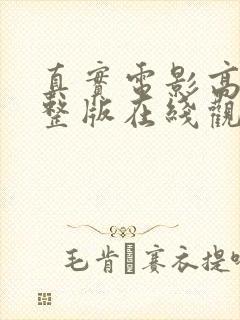 真實電影高
整版在綫觀
毛肯賽衣提